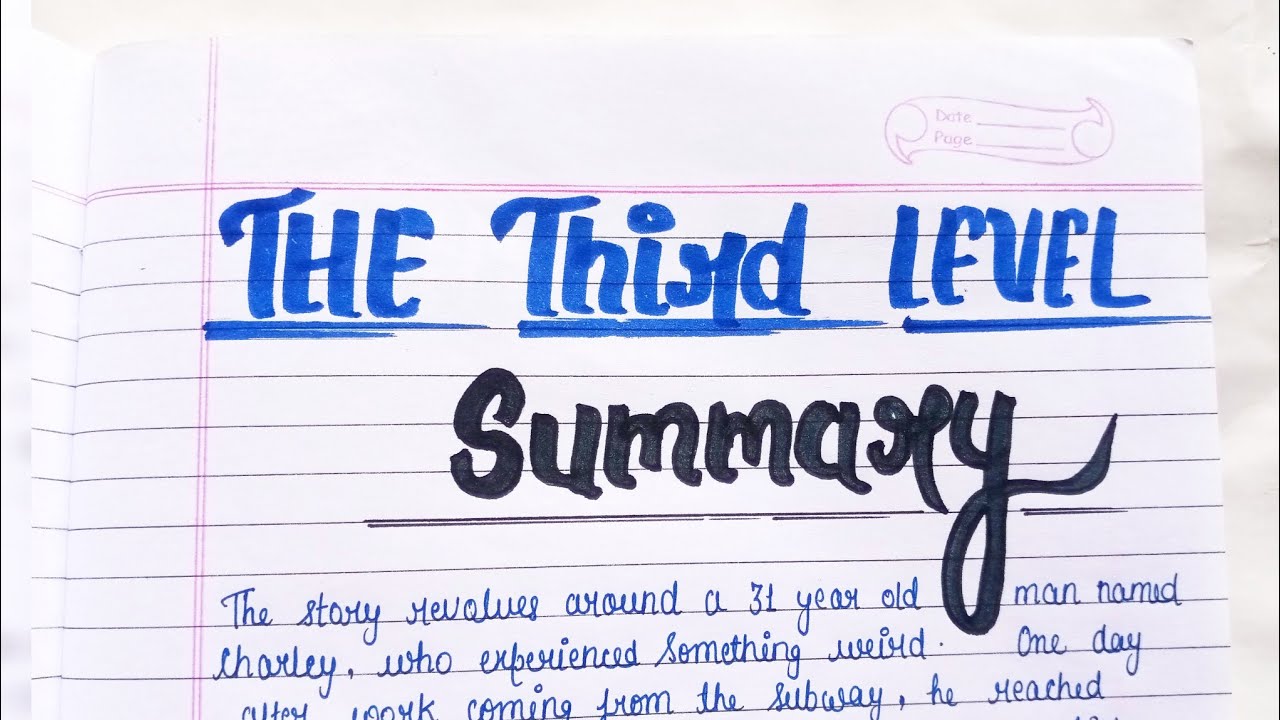 Date
Page
THE Third LEVEL
Summary
The story revolves around a 31 year old man named
Charley, who experienced something weird. One day
after work coming from the subway, he reached